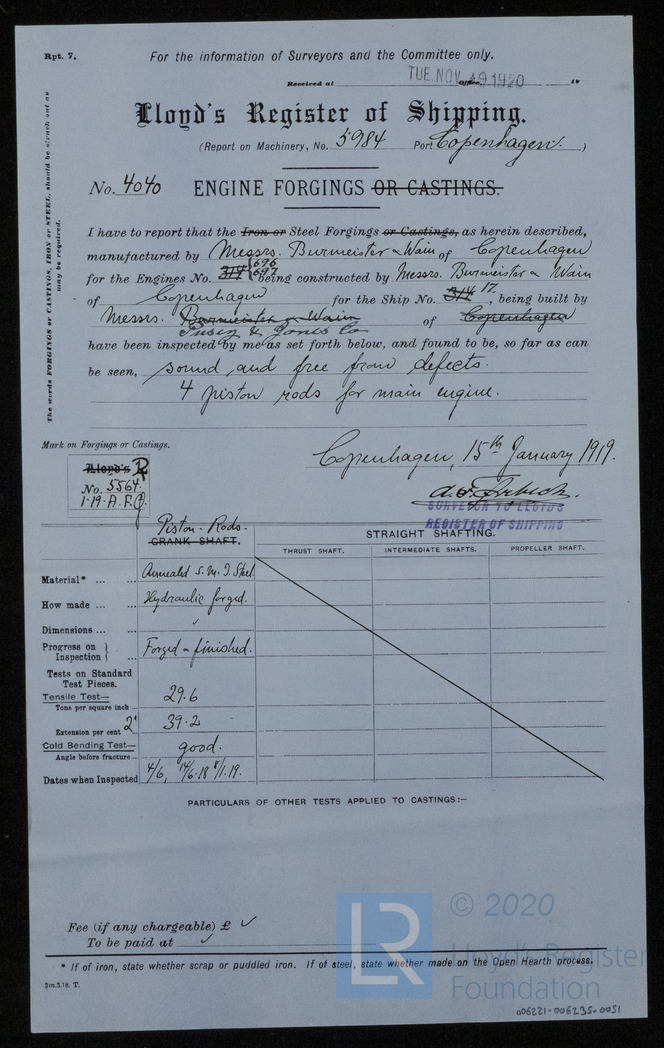 Rpt. 7.
For the information of Surveyors and the Committee only.
Received at TUE. NOV. 9 1920 Office 19
Lloyd's Register of Shipping.
(Report on Machinery, No. 5984 Port Copenhagen.)
No. 4040 ENGINE FORGINGS OR CASTINGS.
The words FORGINGS or CASTINGS, IRON or STEEL, should be struck out as
may be required.
I have to report that the Iron or Steel Forgings or Castings, as herein described,
manufactured by Messrs. Burmeister & Wain of Copenhagen
696
for the Engines No. 314 697 being constructed by Messrs. Burmeister & Wain
of Copenhagen for the Ship No. 314 17, being built by
Messrs. Burmeister & Wain of Copenhagen
Pusey & Jones Co
have been inspected by me as set forth below, and found to be, so far as can
be seen, sound and free from defects.
4 piston rods for main engine.
Mark on Forgings or Castings.
Copenhagen, 15th January 1919.
Lloyd's R
No. 5564.
1.19. A.F.
SURVEYOR TO LLOYD'S
REGISTER OF SHIPPING
Piston-Rods.
CRANK SHAFT. STRAIGHT SHAFTING.
THRUST SHAFT. INTERMEDIATE SHAFTS. PROPELLER SHAFT.
Material* ... ... Annealed S. M. I. Steel.
How made ... ... Hydraulic forged.
Dimensions ... ... ✓
Progress on Inspection } ... Forged & finished.
Tests on Standard
Test Pieces.
Tensile Test—
Tons per square inch 29.6
Extension per cent 2" 39.2
Cold Bending Test—
Angle before fracture good.
Dates when Inspected 4/6, 14/6-18 8/1.19.
PARTICULARS OF OTHER TESTS APPLIED TO CASTINGS:—
Fee (if any chargeable) £ ✓
To be paid at ✓
* If of iron, state whether scrap or puddled iron. If of steel, state whether made on the Open Hearth process.
3m.3.18. T.
LR
© 2020
Lloyd's Register
Foundation
006221-006235-0051